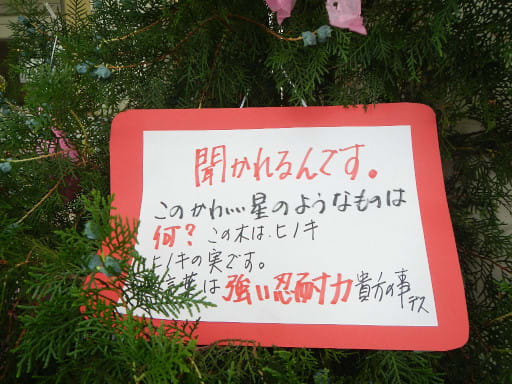 聞かれるんです。
このかわいい星のようなものは
何?この木は、ヒノキ
ヒノキの実です。
言葉は強い忍耐力貴方の事デス